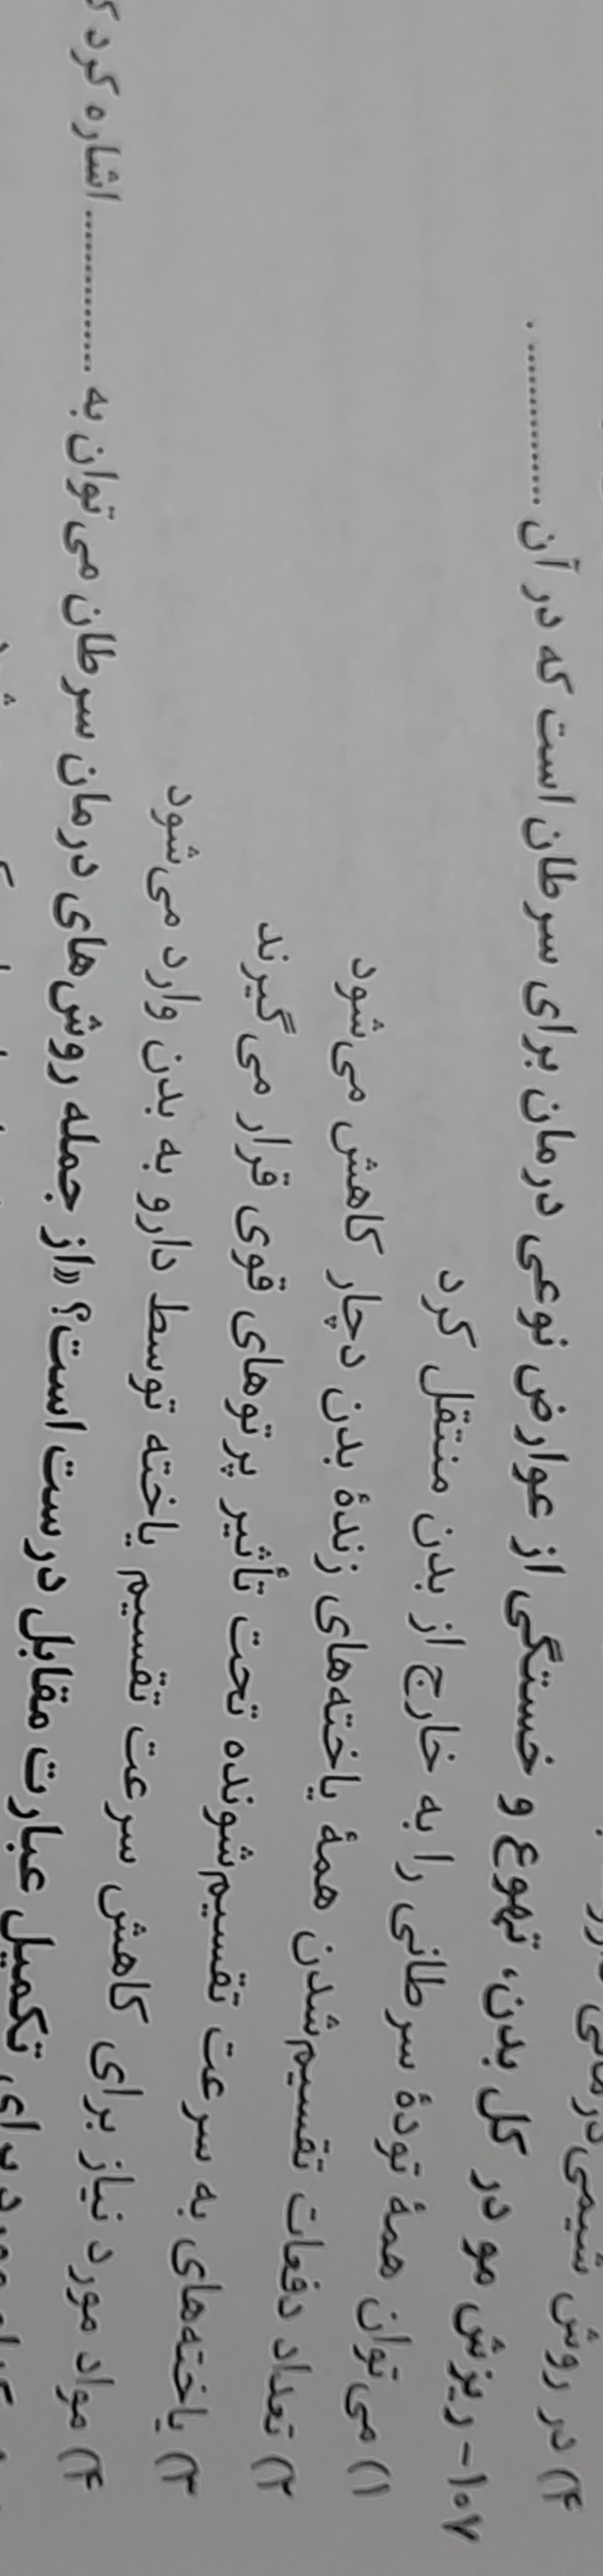 ۴) در روش شیمی‌درمانی
۱۰۷- ریزش مو در کل بدن، تهوع و خستگی از عوارض نوعی درمان برای سرطان است که در آن ................ .
۱) می‌توان همهٔ تودهٔ سرطانی را به خارج از بدن منتقل کرد
۲) تعداد دفعات تقسیم‌شدن همهٔ یاخته‌های زندهٔ بدن دچار کاهش می‌شود
۳) یاخته‌های به سرعت تقسیم‌شونده تحت تأثیر پرتوهای قوی قرار می‌گیرند
۴) مواد مورد نیاز برای کاهش سرعت تقسیم یاخته توسط دارو به بدن وارد می‌شود
تکمیل عبارت مقابل درست است؟ «از جمله روش‌های درمان سرطان می‌توان به ................ اشاره کرد